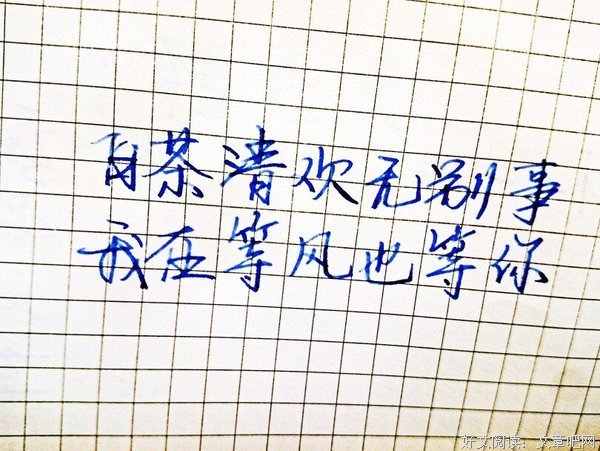 白茶清欢无别事
我在等风也等你
好文阅读:文章吧网